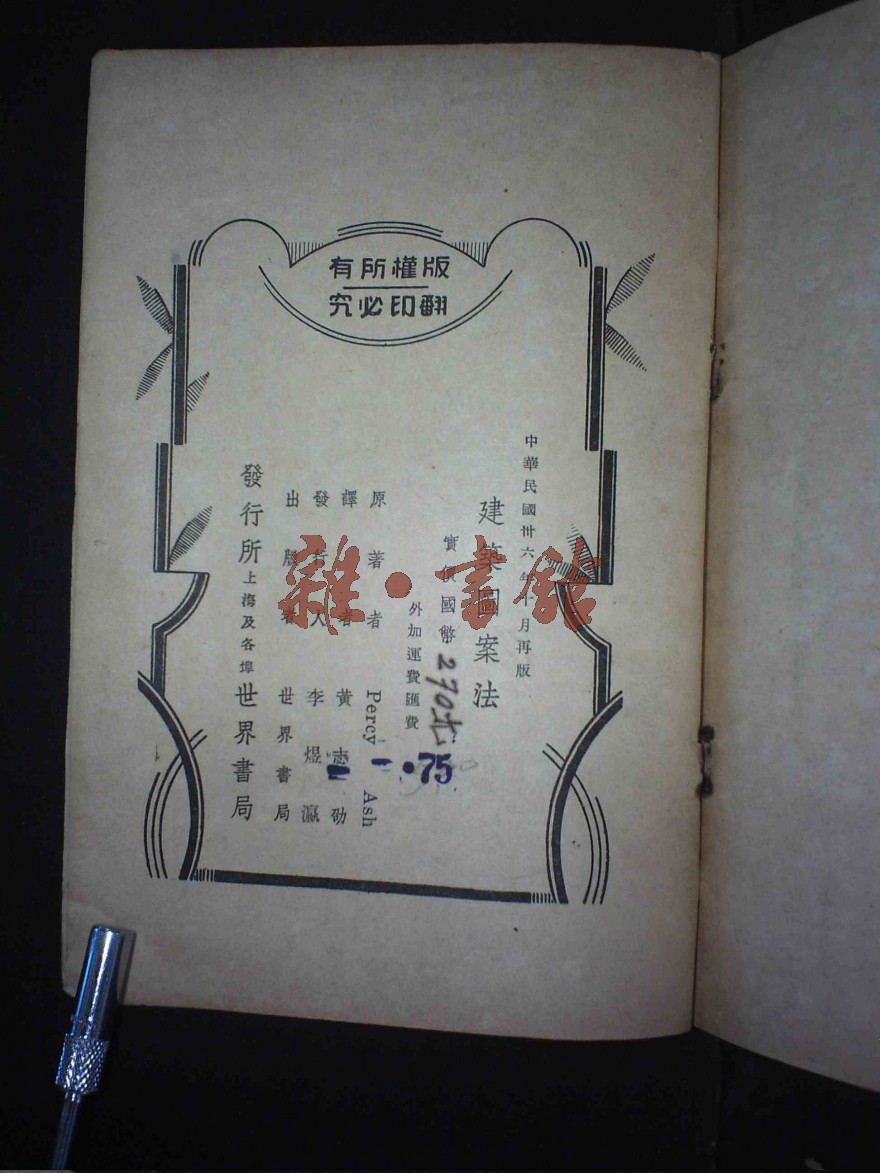 版權所有
翻印必究
中華民國卅六年十月再版
建築圖案法
實價國幣270元
外加運費匯費
原著者 Percy Ash
譯者 黃志劭
發行人 李煜瀛
出版者 世界書局
發行所上海及各埠世界書局
-.75
雜·書館